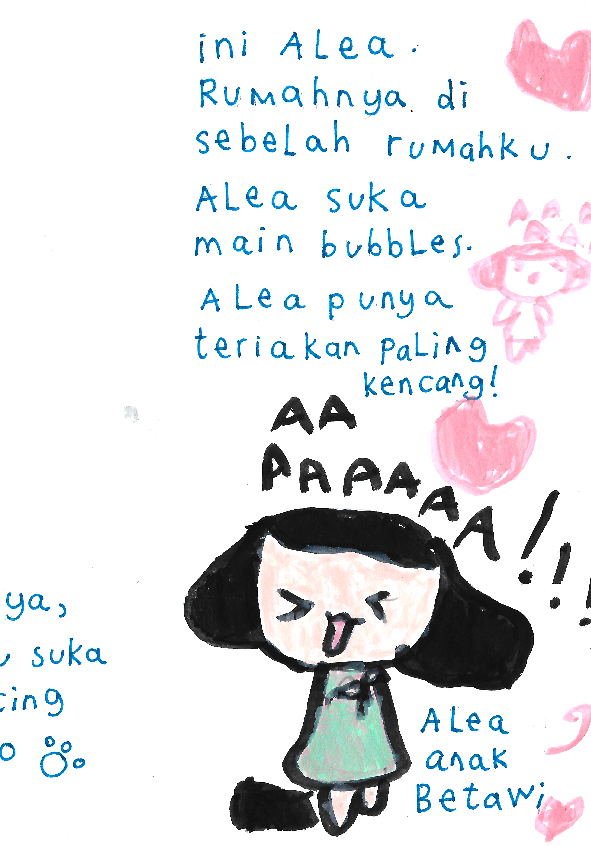 ini ALea.
Rumahnya di
sebelah rumahku.
ALea suka
main bubbles.
ALea punya
teriakan paling
kencang!
AA
AAAAAA!!!
ya,
suka
ing
o
ALea
anak
Betawi